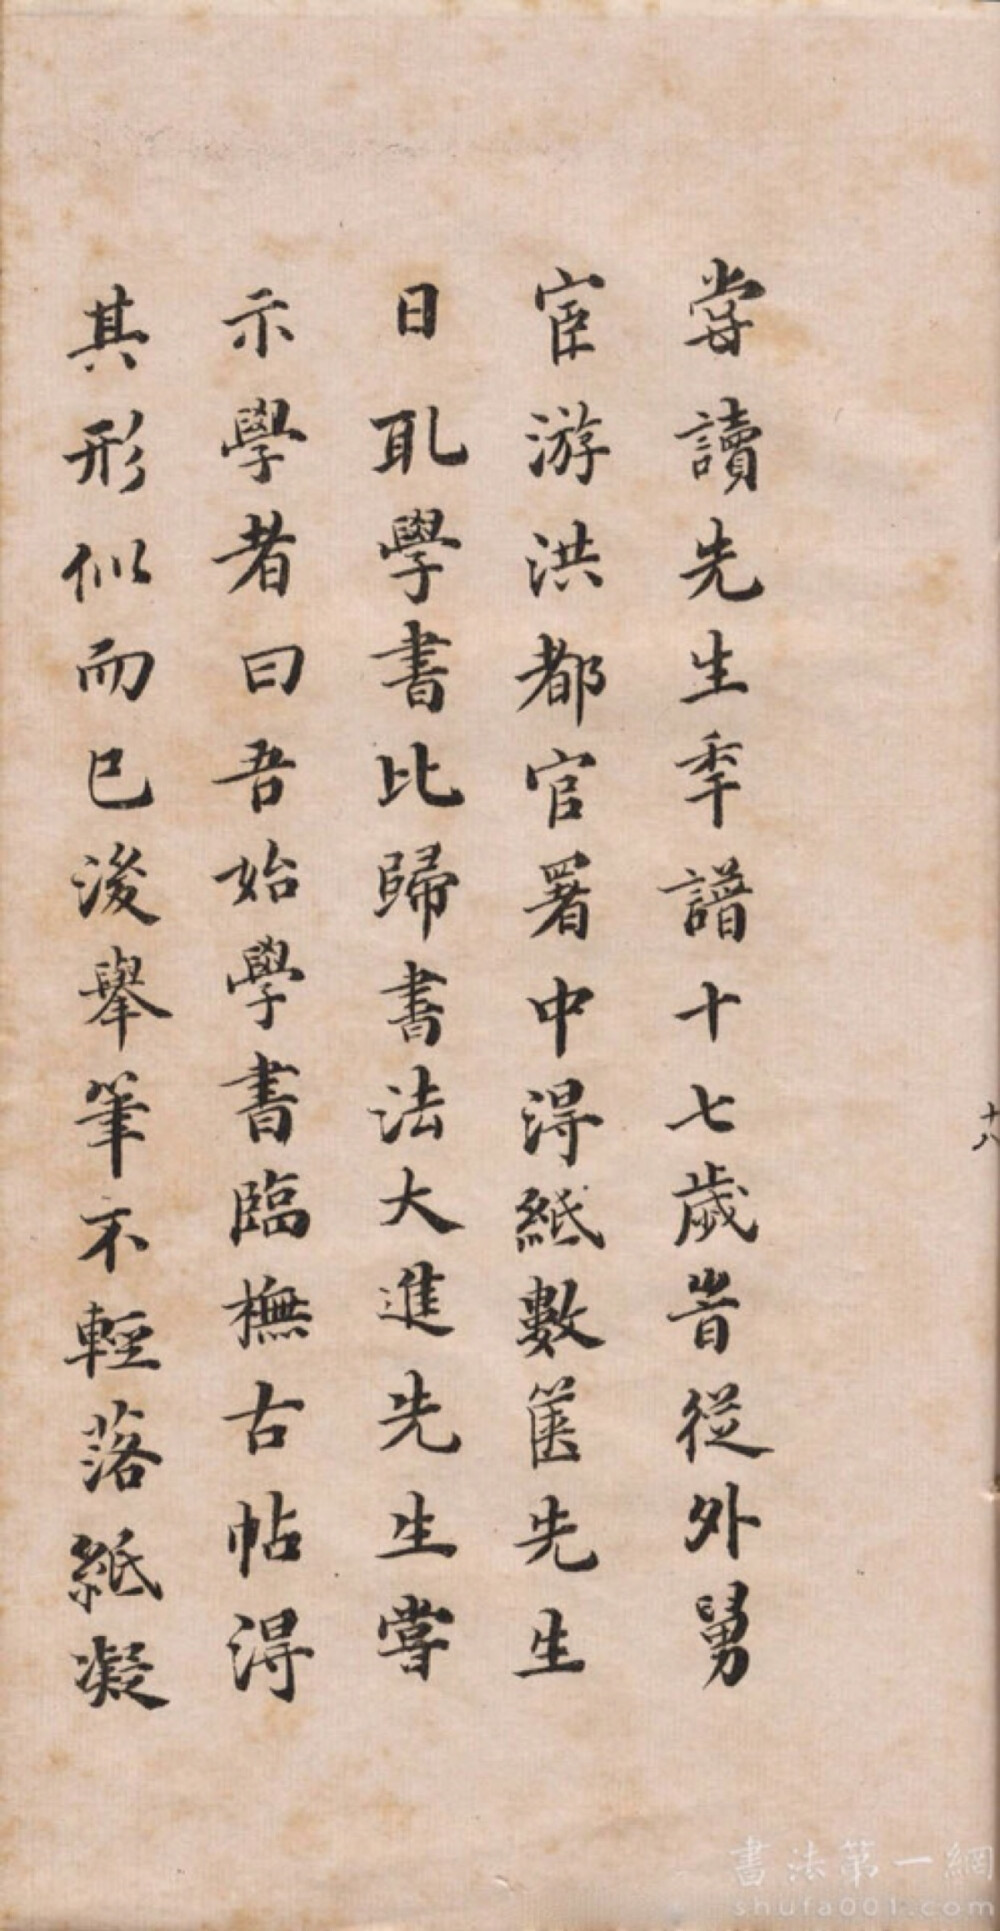 甞讀先生秊譜十七歲旹從外舅
宦游洪都官署中淂紙數篋先生
日取學書比歸書法大進先生嘗
示學者曰吾始學書臨橅古帖淂
其形佀而已後舉筆不輕落紙凝
十八
書法第一網
shufa001.com